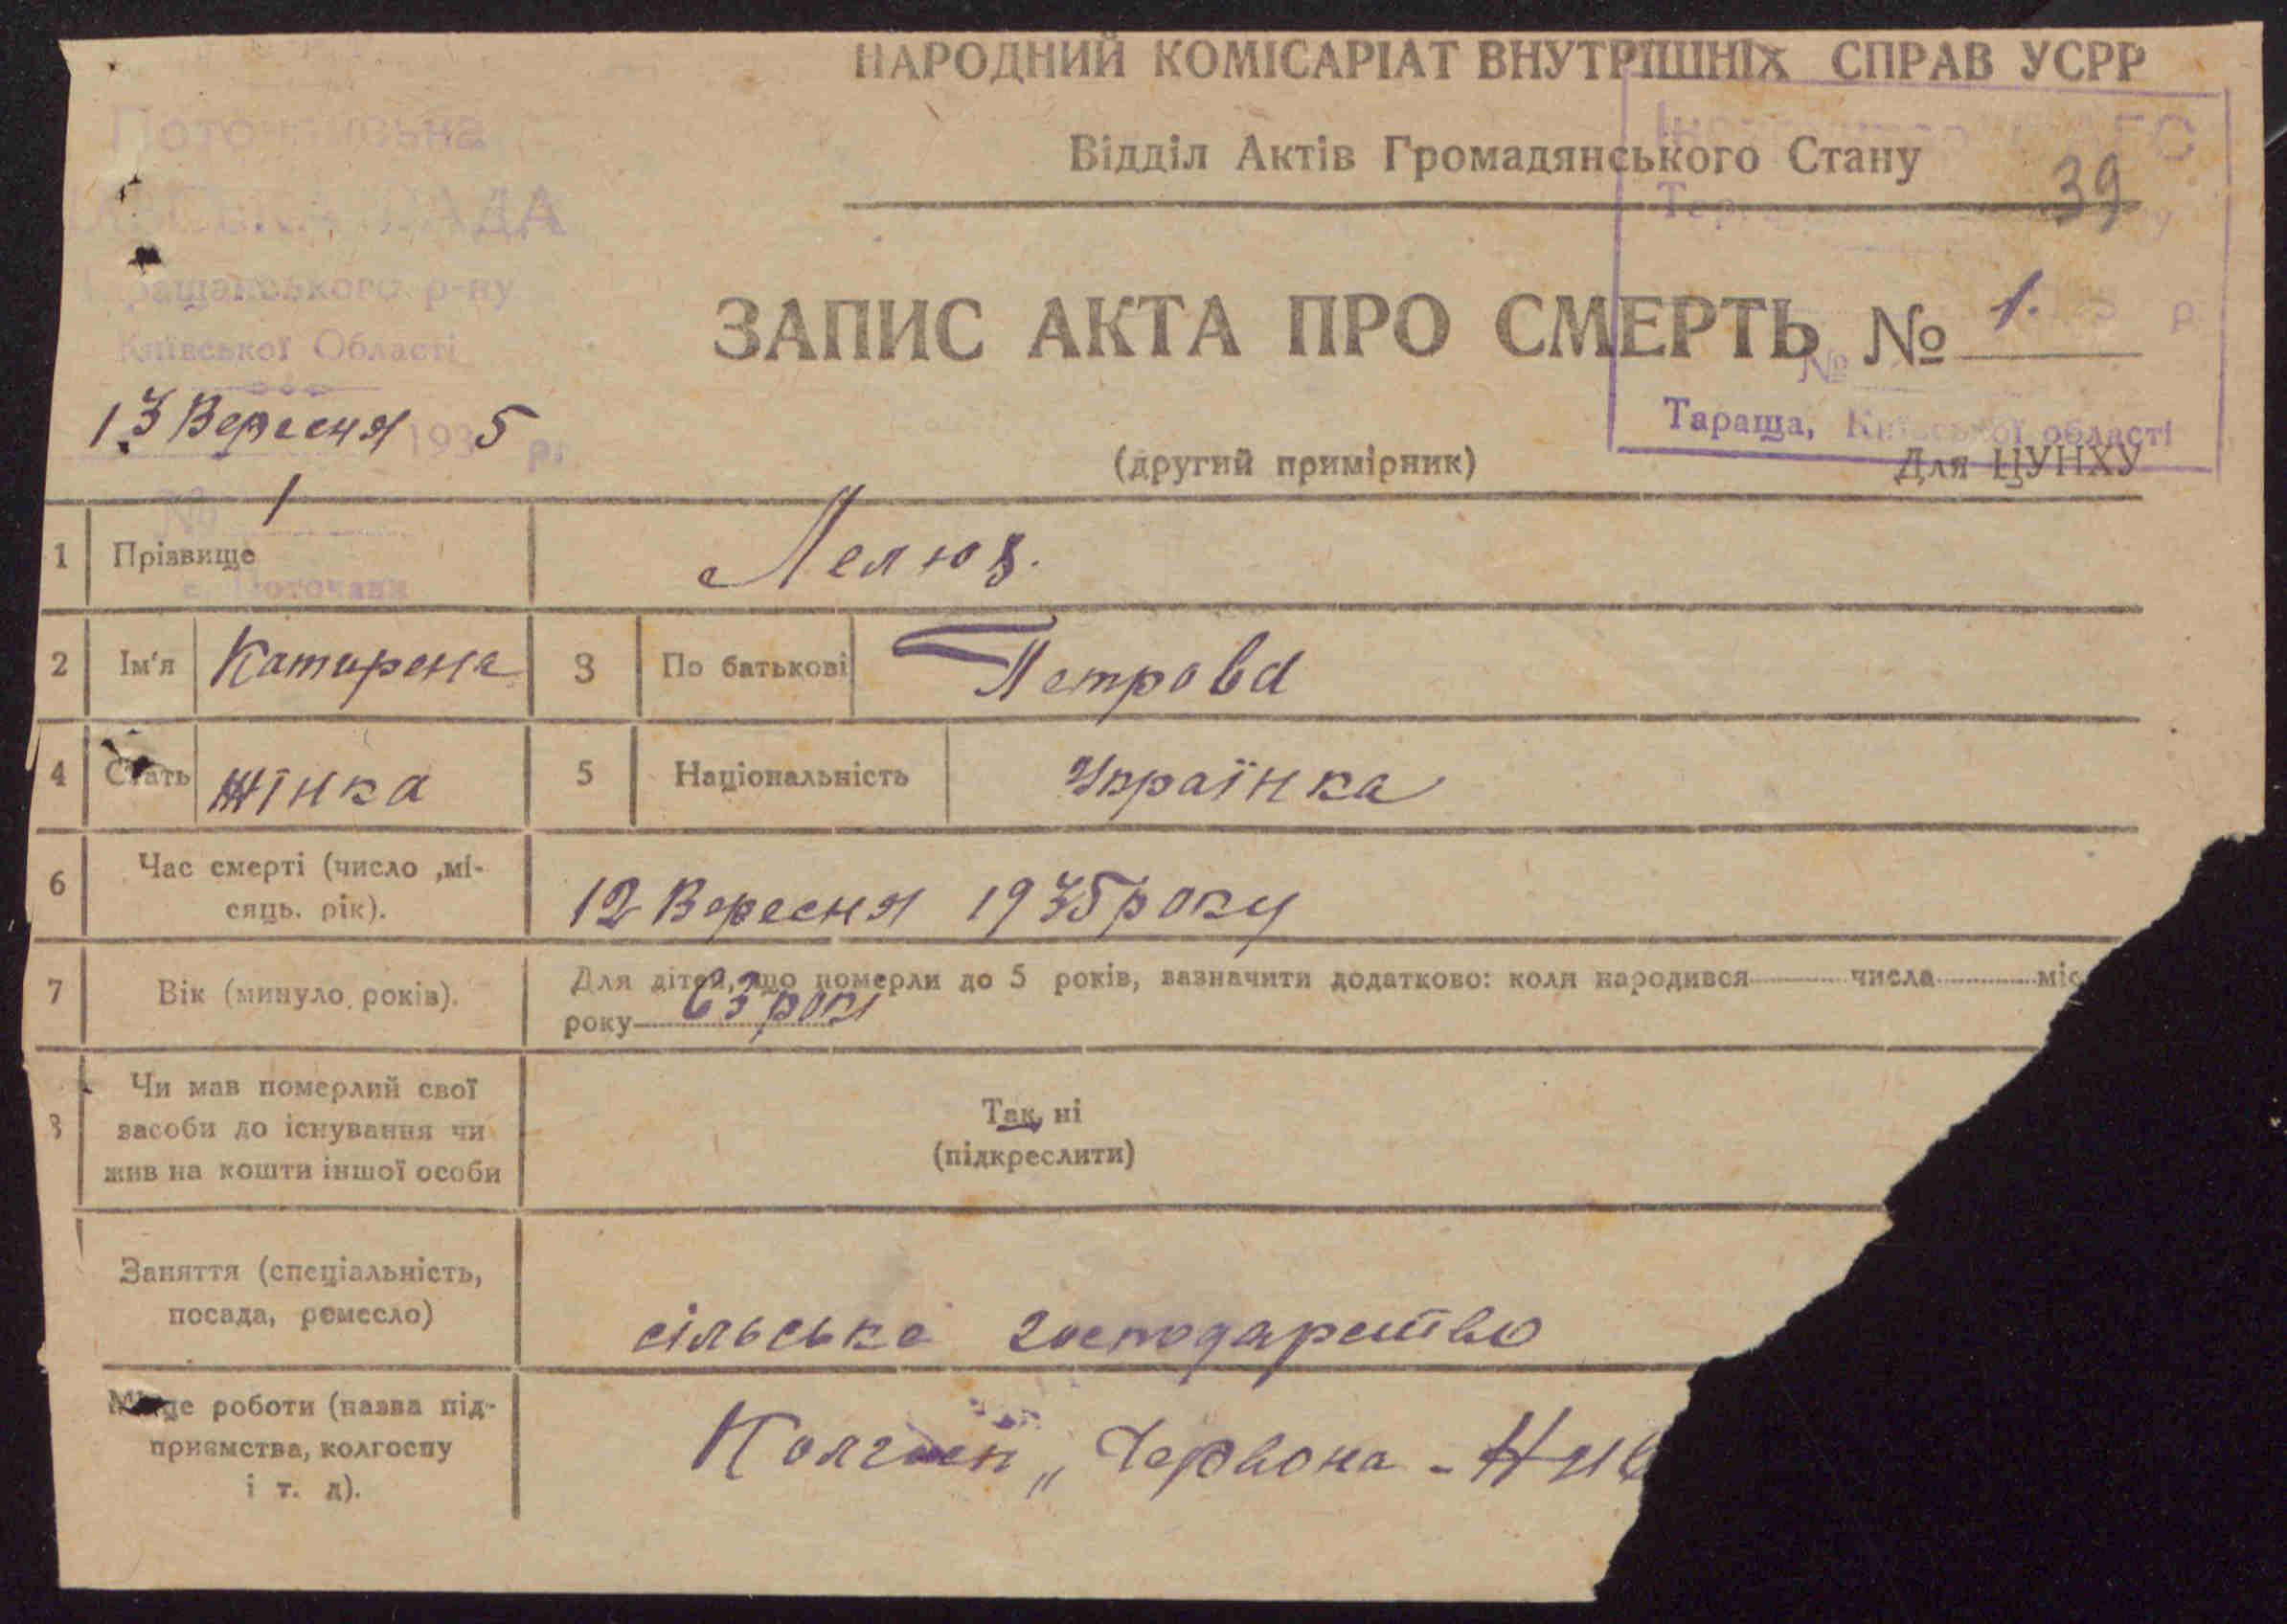 НАРОДНИЙ КОМІСАРІАТ ВНУТРІШНІХ СПРАВ УСРР
Відділ Актів Громадянського Стану
39
РАДА
р-ну
Київської Області
13 Вересня 1935 р.
№ 1
ЗАПИС АКТА ПРО СМЕРТЬ № 1.
р
№
Тараща, Київської області
(другий примірник)
Для ЦУНХУ
1 Прізвище
2 Ім'я Катирена 3 По батькові Петрова
4 Стать жінка 5 Національність Українка
6 Час смерті (число ,мі-
сяць. рік).
12 Вересня 1935 року
7 Вік (минуло років).
Для дітей, що померли до 5 років, зазначити додатково: коли народився числа міс
року 63 роки
8 Чи мав померлий свої
засоби до існування чи
жив на кошти іншої особи
Так, ні
(підкреслити)
Заняття (спеціальність,
посада, ремесло)
сільське господарство
Місце роботи (назва під-
приємства, колгоспу
і т. д).
Колгосп „Червона - Нив